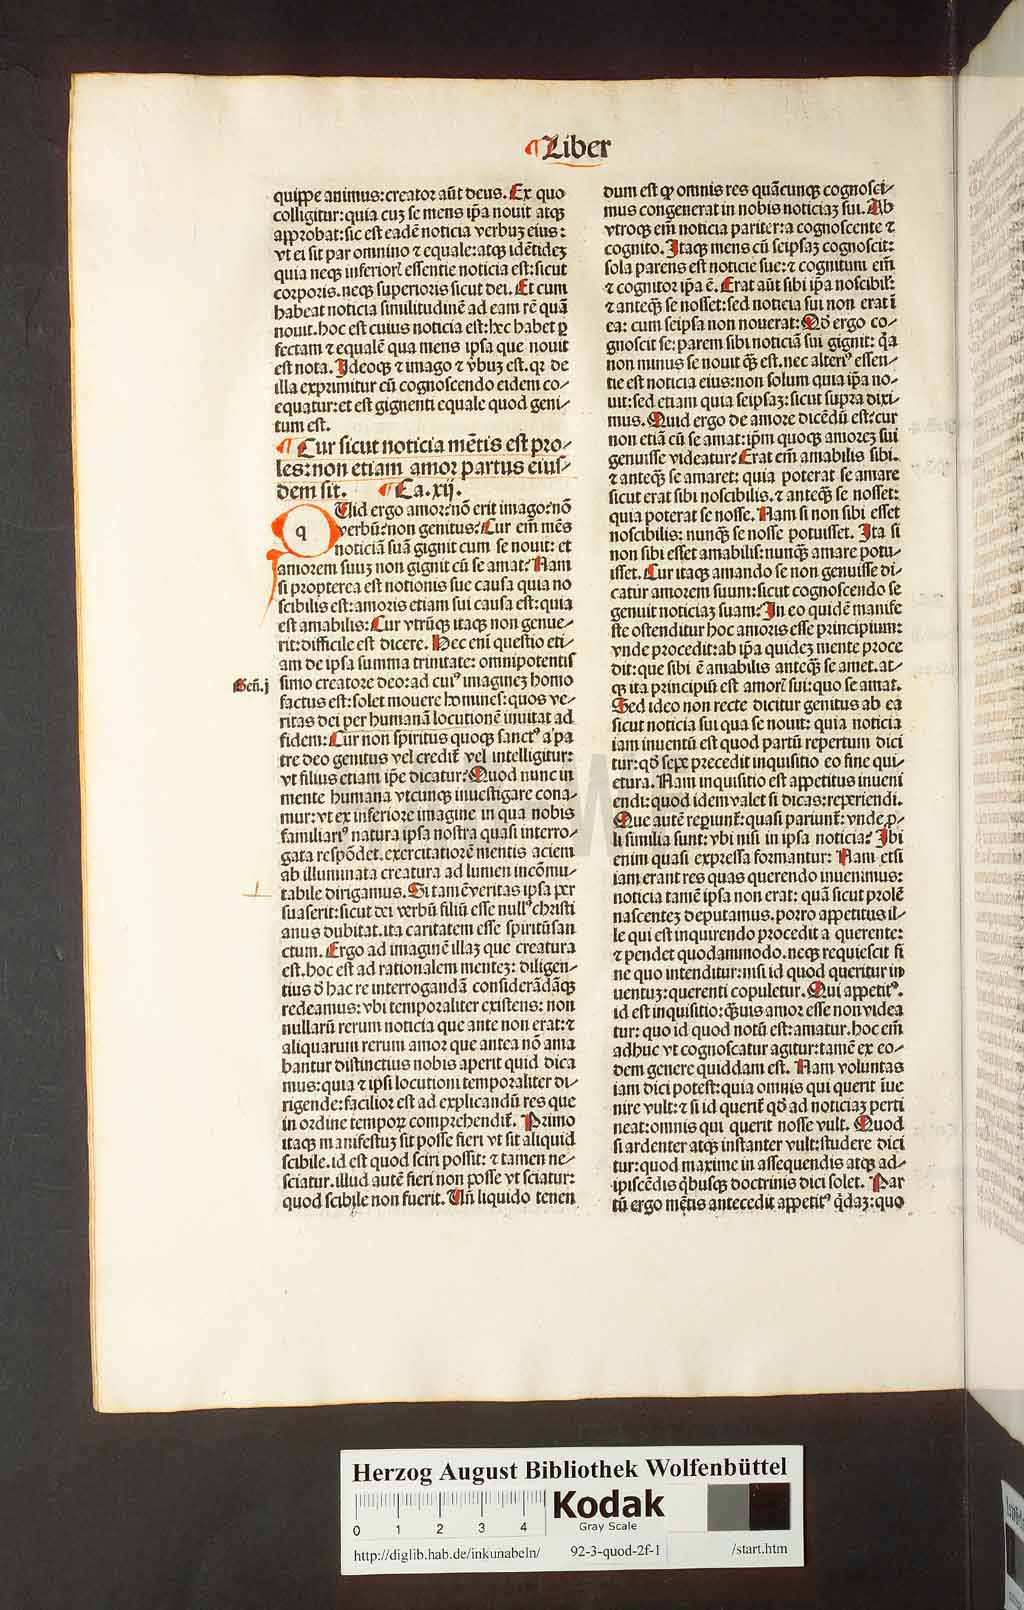 ¶Liber
quippe animus:creator aūt deus. Ex quo
colligitur:quia cuȝ se mens ip̄a nouit atqȝ
approbat:sic est eadē noticia verbuȝ eius:
vt ei sit par omnino ⁊ equale:atqȝ idētideȝ
quia neqȝ inferiorꝭ essentie noticia est:sicut
corporis.neqȝ superioris sicut dei. Et cum
habeat noticia similitudinē ad eam rē quā
nouit.hoc est cuius noticia est:hec habet ꝑ
fectam ⁊ equalē qua mens ipsa que nouit
est nota. Ideoqȝ ⁊ imago ⁊ v̄buȝ est.qꝛ de
illa exprimitur cū cognoscendo eidem co⸗
equatur:et est gignenti equale quod geni⸗
tum est.
¶ Cur sicut noticia mētis est pro⸗
les:non etiam amor partus eius⸗
dem sit. ¶ Ca.xij.
q UId ergo amor?nō erit imago?nō
verbū?non genitus? Cur em̄ mēs
noticiā suā gignit cum se nouit: et
amorem suuȝ non gignit cū se amat? Nam
si propterea est notionis sue causa quia no
scibilis est:amoris etiam sui causa est:quia
est amabilis: Cur vtrūqȝ itaqȝ non genue⸗
rit:difficile est dicere. Hec eni questio eti⸗
am de ipsa summa trinitate: omnipotentis
Geñ.j
simo creatore deo:ad cuiꝰ imagineȝ homo
factus est:solet mouere homines:quos ve⸗
ritas dei per humanā locutionē inuitat ad
fidem: Cur non spiritus quoqȝ sanctꝰ a pa
tre deo genitus vel credit᷑ vel intelligitur:
vt filius etiam ip̄e dicatur? Quod nunc in
mente humana vtcunqȝ inuestigare cona⸗
mur:vt ex inferiore imagine in qua nobis
familiariꝰ natura ipsa nostra quasi interro⸗
gata respōdet.exercitatiorē mentis aciem
ab illuminata creatura ad lumen incōmu⸗
tabile dirigamus. Si tamē veritas ipsa per
suaserit:sicut dei verbū filiū esse nullꝰ christi
anus dubitat.ita caritatem esse spiritū san
ctum. Ergo ad imaginē illaȝ que creatura
est.hoc est ad rationalem menteȝ: diligen⸗
tius ð hac re interrogandā considerādāqȝ
redeamus:vbi temporaliter existens: non
nullarū rerum noticia que ante non erat:⁊
aliquarum rerum amor que antea nō ama
bantur distinctius nobis aperit quid dica
mus:quia ⁊ ipsi locutioni temporaliter di⸗
rigende:facilior est ad explicandū res que
in ordine tempoꝝ comprehendit᷑. Primo
itaqȝ manifestuȝ sit posse fieri vt sit aliquid
scibile.id est quod sciri possit: ⁊ tamen ne⸗
sciatur.illud autē fieri non posse vt sciatur:
quod scibile non fuerit. Uñ liquido tenen
dum est qꝙ omnis res quācunqȝ cognosci⸗
mus congenerat in nobis noticiaȝ sui. Ab
vtroqȝ em̄ noticia pariter:a cognoscente ⁊
cognito. Itaqȝ mens cū seipsaȝ cognoscit:
sola parens est noticie sue:⁊ cognitum em̄
⁊ cognitor ip̄a ē. Erat aūt sibi ip̄a noscibil᷑:
⁊ anteqȝ̄ se nosset:sed noticia sui non erat ī
ea: cum seipsa non nouerat: Qð ergo co⸗
gnoscit se:parem sibi noticiā sui gignit: q̄a
non minus se nouit qȝ̄ est.nec alteriꝰ essen⸗
tie est noticia eius:non solum quia ip̄a no⸗
uit:sed etiam quia seipsaȝ:sicut supra dixi⸗
mus. Quid ergo de amore dicēdū est?cur
non etiā cū se amat:ip̄m quoqȝ amoreȝ sui
genuisse videatur? Erat em̄ amabilis sibi.
⁊ anteqȝ̄ se amaret: quia poterat se amare
sicut erat sibi noscibilis.⁊ anteqȝ̄ se nosset:
quia poterat se nosse. Nam si non sibi esset
noscibilis: nunqȝ̄ se nosse potuisset. Ita si
non sibi esset amabilis:nunqȝ̄ amare potu⸗
isset. Cur itaqȝ amando se non genuisse di⸗
catur amorem suum:sicut cognoscendo se
genuit noticiaȝ suam? In eo quidē manife
ste ostenditur hoc amoris esse principium:
vnde procedit:ab ip̄a quideȝ mente proce
dit:que sibi ē amabilis anteqȝ̄ se amet.at⸗
qȝ ita principiū est amorꝭ sui:quo se amat.
Sed ideo non recte dicitur genitus ab ea
sicut noticia sui qua se nouit: quia noticia
iam inuentū est quod partū repertum dici
tur:qð sepe precedit inquisitio eo fine qui⸗
etura. Nam inquisitio est appetitus inueni
endi:quod idem valet si dicas:reperiendi.
Que autē reꝑiunt᷑:quasi pariunt᷑:vnde ꝓ⸗
li similia sunt:vbi nisi in ipsa noticia? Ibi
enim quasi expressa formantur: Nam etsi
iam erant res quas querendo inuenimus:
noticia tamē ipsa non erat: quā sicut prolē
nascenteȝ deputamus.porro appetitus il⸗
le qui est inquirendo procedit a querente:
⁊ pendet quodammodo.neqȝ requiescit fi
ne quo intenditur:nisi id quod queritur in
uentuȝ:querenti copuletur. Qui appetitꝰ.
id est inquisitio:qȝ̄uis amor esse non videa
tur: quo id quod notū est:amatur.hoc em̄
adhuc vt cognoscatur agitur:tamē ex eo⸗
dem genere quiddam est. Nam voluntas
iam dici potest:quia omnis qui querit īue
nire vult:⁊ si id querit᷑ qð ad noticiaȝ perti
neat:omnis qui querit nosse vult. Quod
si ardenter atqȝ instanter vult:studere dici
tur:quod maxime in assequendis atqȝ ad⸗
ipiscēdis q̄busqȝ doctrinis dici solet. Par
tū ergo mētis antecedit appetitꝰ q̄daȝ:quo
Herzog August Bibliothek Wolfenbüttel
0 1 2 3 4
Kodak
Gray Scale
http://diglib.hab.de/inkunabeln/ 92-3-quod-2f-1 /start.htm